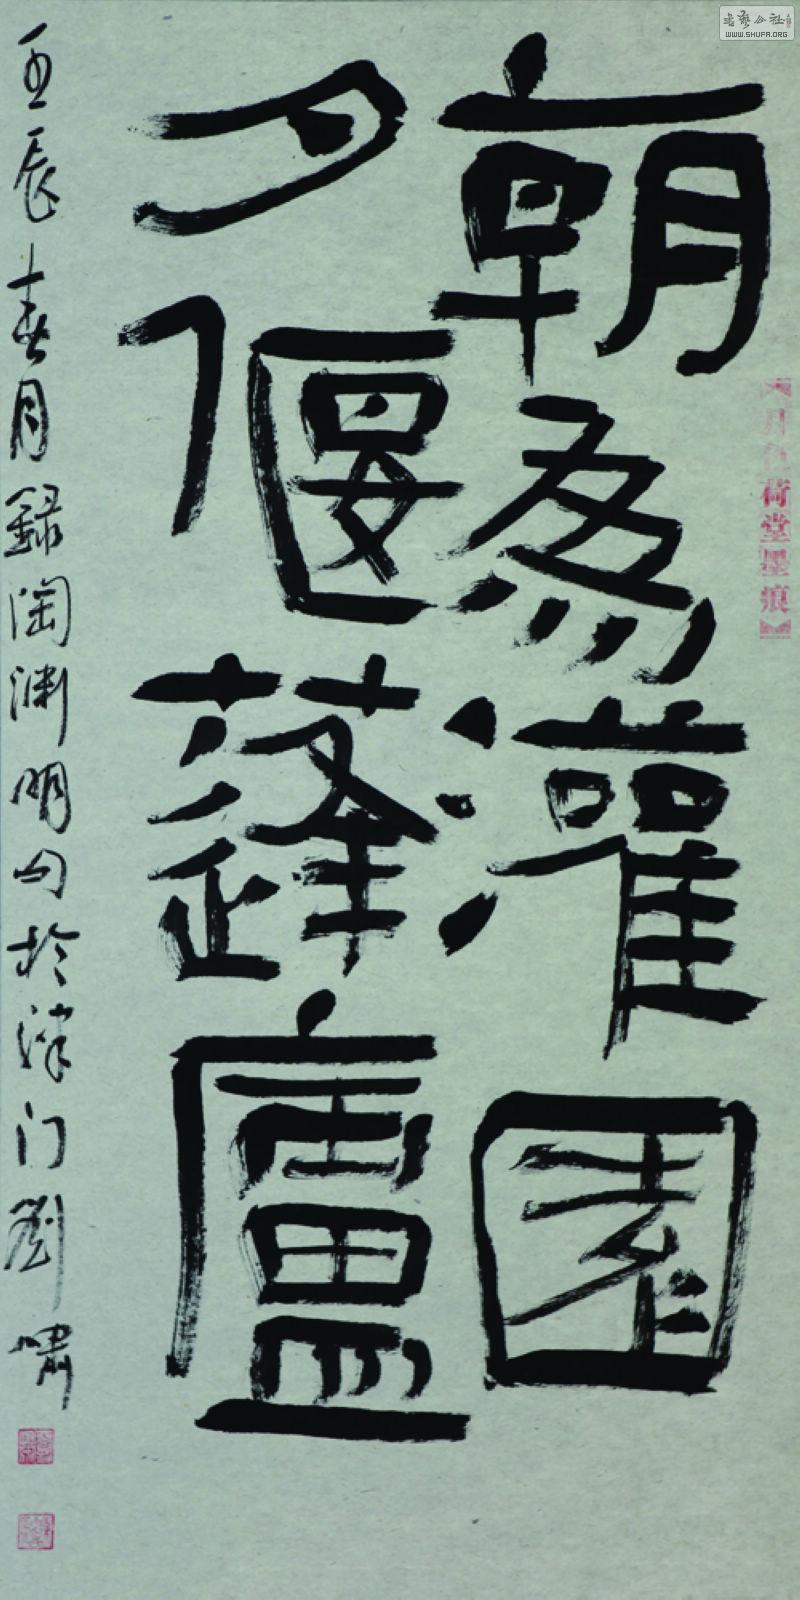 朝為灌園
夕偃蓬廬
壬辰春月錄陶淵明句於津门劉嘯
【月色荷堂墨痕】
书艺公社
WWW.SHUFA.ORG